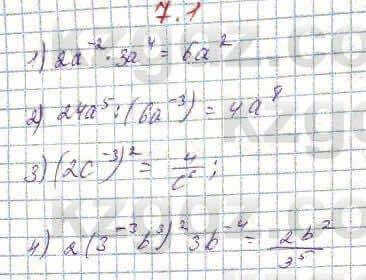 7.1
1) 2a⁻² · 3a⁴ = 6a²
2) 24a⁵ : (6a⁻³) = 4a⁸
3) (2c⁻³)² = 4/c⁶ ;
4) 2(3⁻³b³)² 3b⁻⁴ = 2b²/3⁵